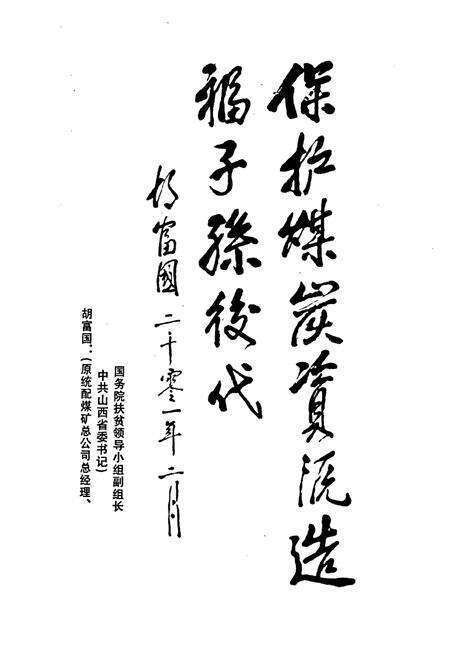 保护煤炭資源造
福子孫後代
胡富國 二千零一年二月
胡富国：（原统配煤矿总公司总经理、
中共山西省委书记）
国务院扶贫领导小组副组长